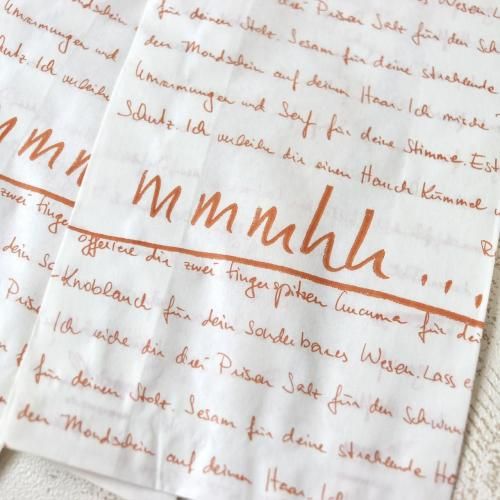 drei Prisen Salz für den Sch
für deinen Stolz. Sesam für deine strahlende
den Mondschein auf deinem Haar. Ich mische
Umarmungen und Senf für deine Stimme. Est
Schutz. Ich verleihe dir einen Hauch Kümmel
mmmhh...
offeriere dir zwei Fingerspitzen Curcuma für dein
Knoblauch für dein sonderbares Wesen. Lass e
Ich reiche dir drei Prisen Salz für den Schwun
für deinen Stolz. Sesam für deine strahlende Ha
den Mondschein auf deinem Haar. Ich
Umarmungen und
Schutz. Ich verleihe
mmm
zwei Finge
dein So